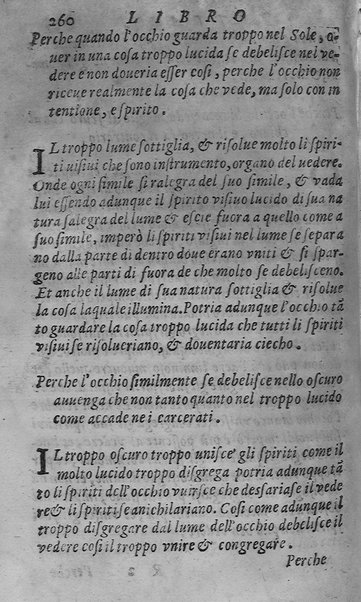 260 LIBRO
Perche quando l'occhio guarda troppo nel Sole, o
uer in una cosa troppo lucida se debelisce nel ve-
dere e non doueria esser cosi, perche l'occhio non
riceue realmente la cosa che vede, ma solo con in
tentione, e spirito.
IL troppo lume sottiglia, & risolue molto li spiri-
ti uisiui che sono instrumento, organo del uedere.
Onde ogni simile si ralegra del suo simile, & vada
lui essendo adunque il spirito visiuo lucido di sua na
tura salegra del lume & escie fuora a quello come a
suo simile, imperò li spiriti visiui nel lume se separa
no dalla parte di dentro doue erano vniti & si spar-
geno alle parti di fuora de che molto se debelisceno.
Et anche il lume di sua natura sottiglia & risolue
la cosa laquale illumina. Potria adunque l'occhio tã
to guardare la cosa troppo lucida che tutti li spiriti
visiui se risolueriano, & douentaria ciecho.
Perche l'occhio similmente se debelisce nello oscuro
auuenga che non tanto quanto nel troppo lucido
come accade ne i carcerati.
IL troppo oscuro troppo unisce gli spiriti come il
molto lucido troppo disgrega potria adunque tã
to li spiriti dell'occhio vuirsce che desfariase il vede
re & li spiriti se anichilariano. Cosi come adunque il
troppo disgregare dal lume dell'occhio debelisce il
vedere cosi il troppo vnire & congregare.
Perche